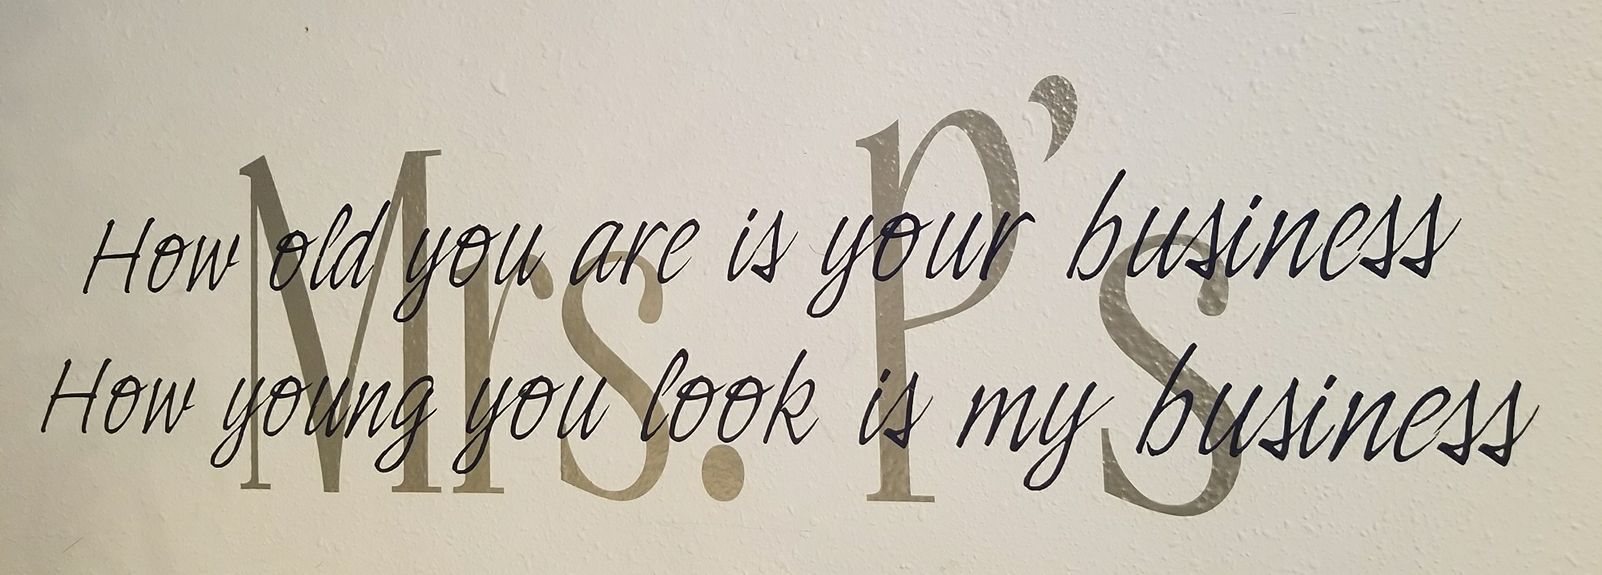 Mrs. P's
How old you are is your business
How young you look is my business